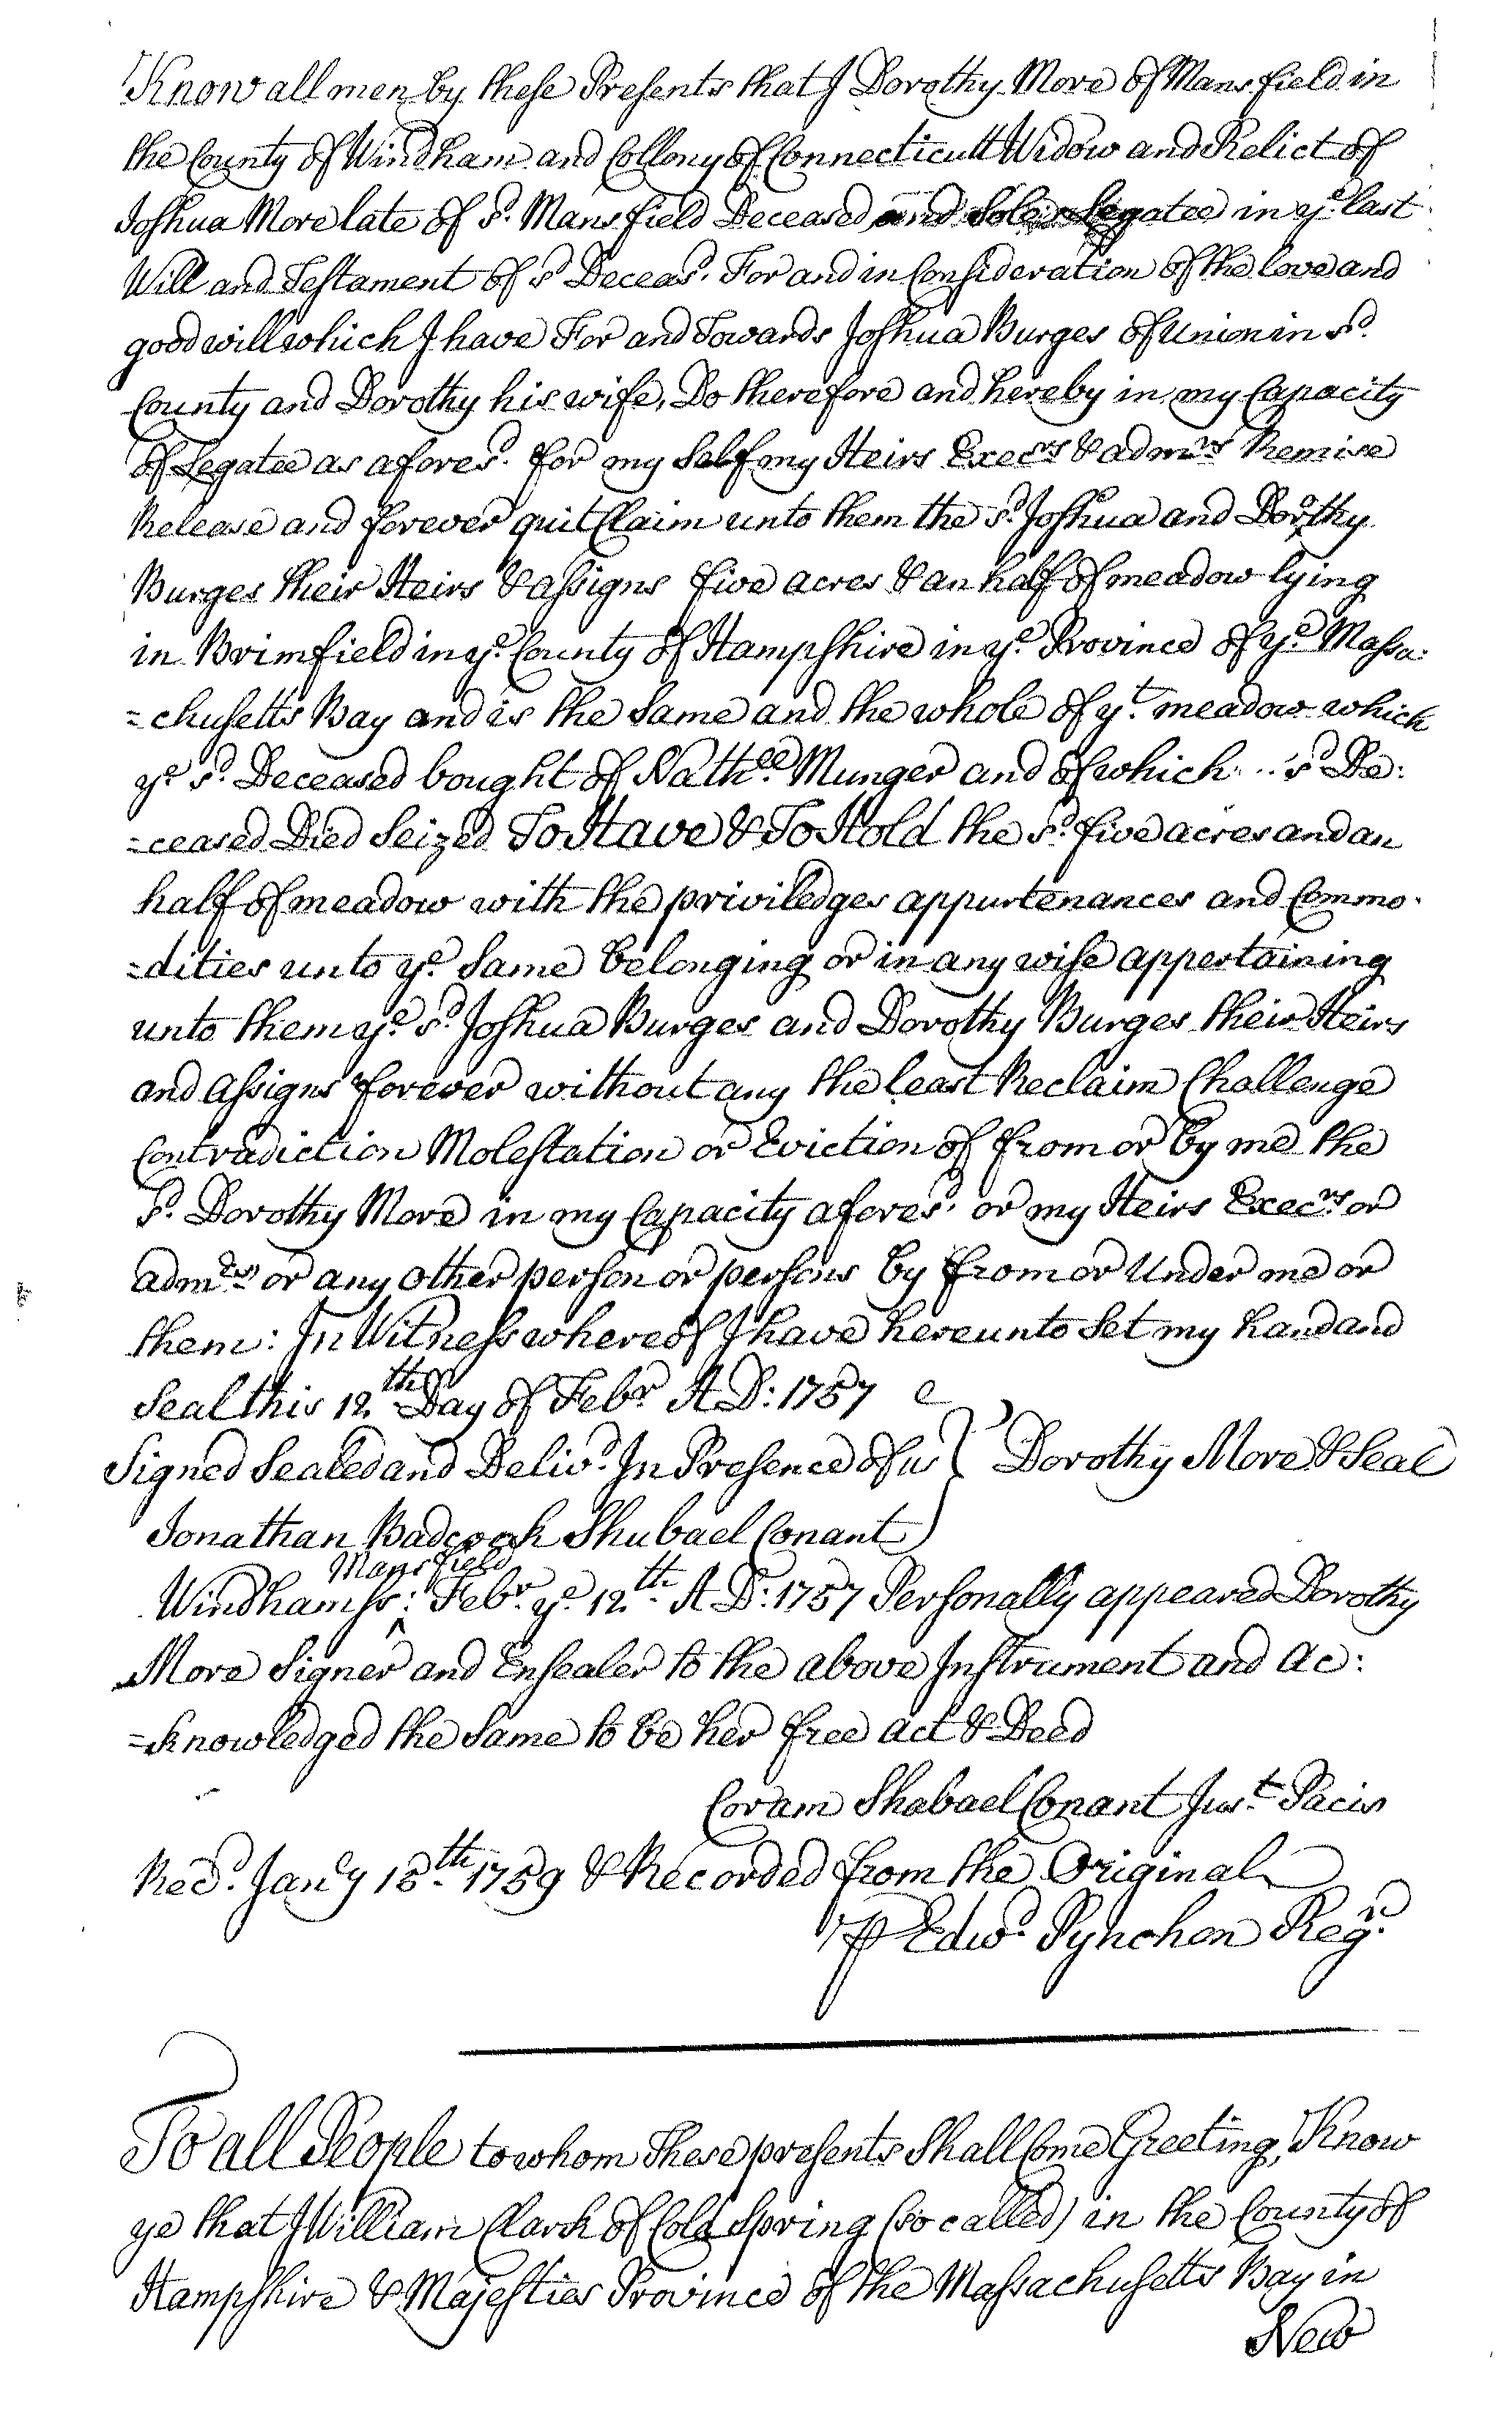 Know all men by these Presents that I Dorothy More of Mansfield in
the County of Windham and Collony of Connecticutt Widow and Relict of
Joshua More late of sd. Mansfield Deceased and Sole Legatee in ye. last
Will and Testament of sd Deceasd. For and in Consideration of the love and
good will which I have For and Towards Joshua Burges of Union in sd.
County and Dorothy his wife, Do therefore and hereby in my Capacity
of Legatee as aforesd. for my Self my Heirs Execrs & admrs Remise
Release and forever quit Claim unto them the sd. Joshua and Dorothy
Burges their Heirs & assigns five acres & an half of meadow lying
in Brimfield in ye. County of Hampshire in ye. Province of ye. Massa:
=chusetts Bay and is the Same and the whole of yt. meadow which
ye sd. Deceased bought of Nathll. Munger and of which .. sd De:
=ceased Died Seized To Have & To Hold the sd. five acres and an
half of meadow with the priviledges appurtenances and Commo-
=dities unto ye. Same belonging or in any wise appertaining
unto them ye. sd. Joshua Burges and Dorothy Burges their Heirs
and assigns forever without any the least Reclaim Challenge
Contradiction Molestation or Eviction of from or by me the
sd. Dorothy More in my Capacity aforesd. or my Heirs Execrs or
admrs or any other person or persons by from or Under me or
them: In Witness whereof I have hereunto Set my hand and
Seal this 12.th Day of Febr. A D: 1757
Signed Sealed and Delivd. In Presence of us } Dorothy More & Seal
Jonathan Badcock Shubael Conant
Mansfield
Windham ss: ^ Febr. ye. 12th. A D: 1757 Personally appeared Dorothy
More Signer and Ensealer to the above Instrument and Ac:
=knowledged the Same to be her free act & Deed
Coram Shabael Conant Just. Pacis
Recd. Jany 18th. 1759 & Recorded from the Original
⅌ Edwd. Pynchon Regr.
To all People to whom these presents Shall Come Greeting, Know
ye that I William Clark of Cold Spring (so called) in the County of
Hampshire & Majesties Province of the Massachusetts Bay in
New